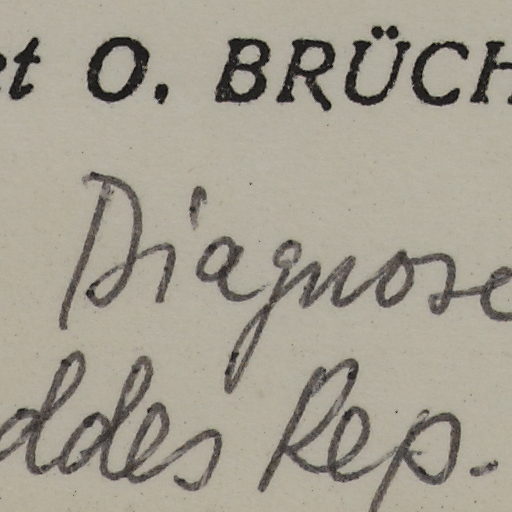 et O. BRÜCH
Diagnose
ddes Rep.